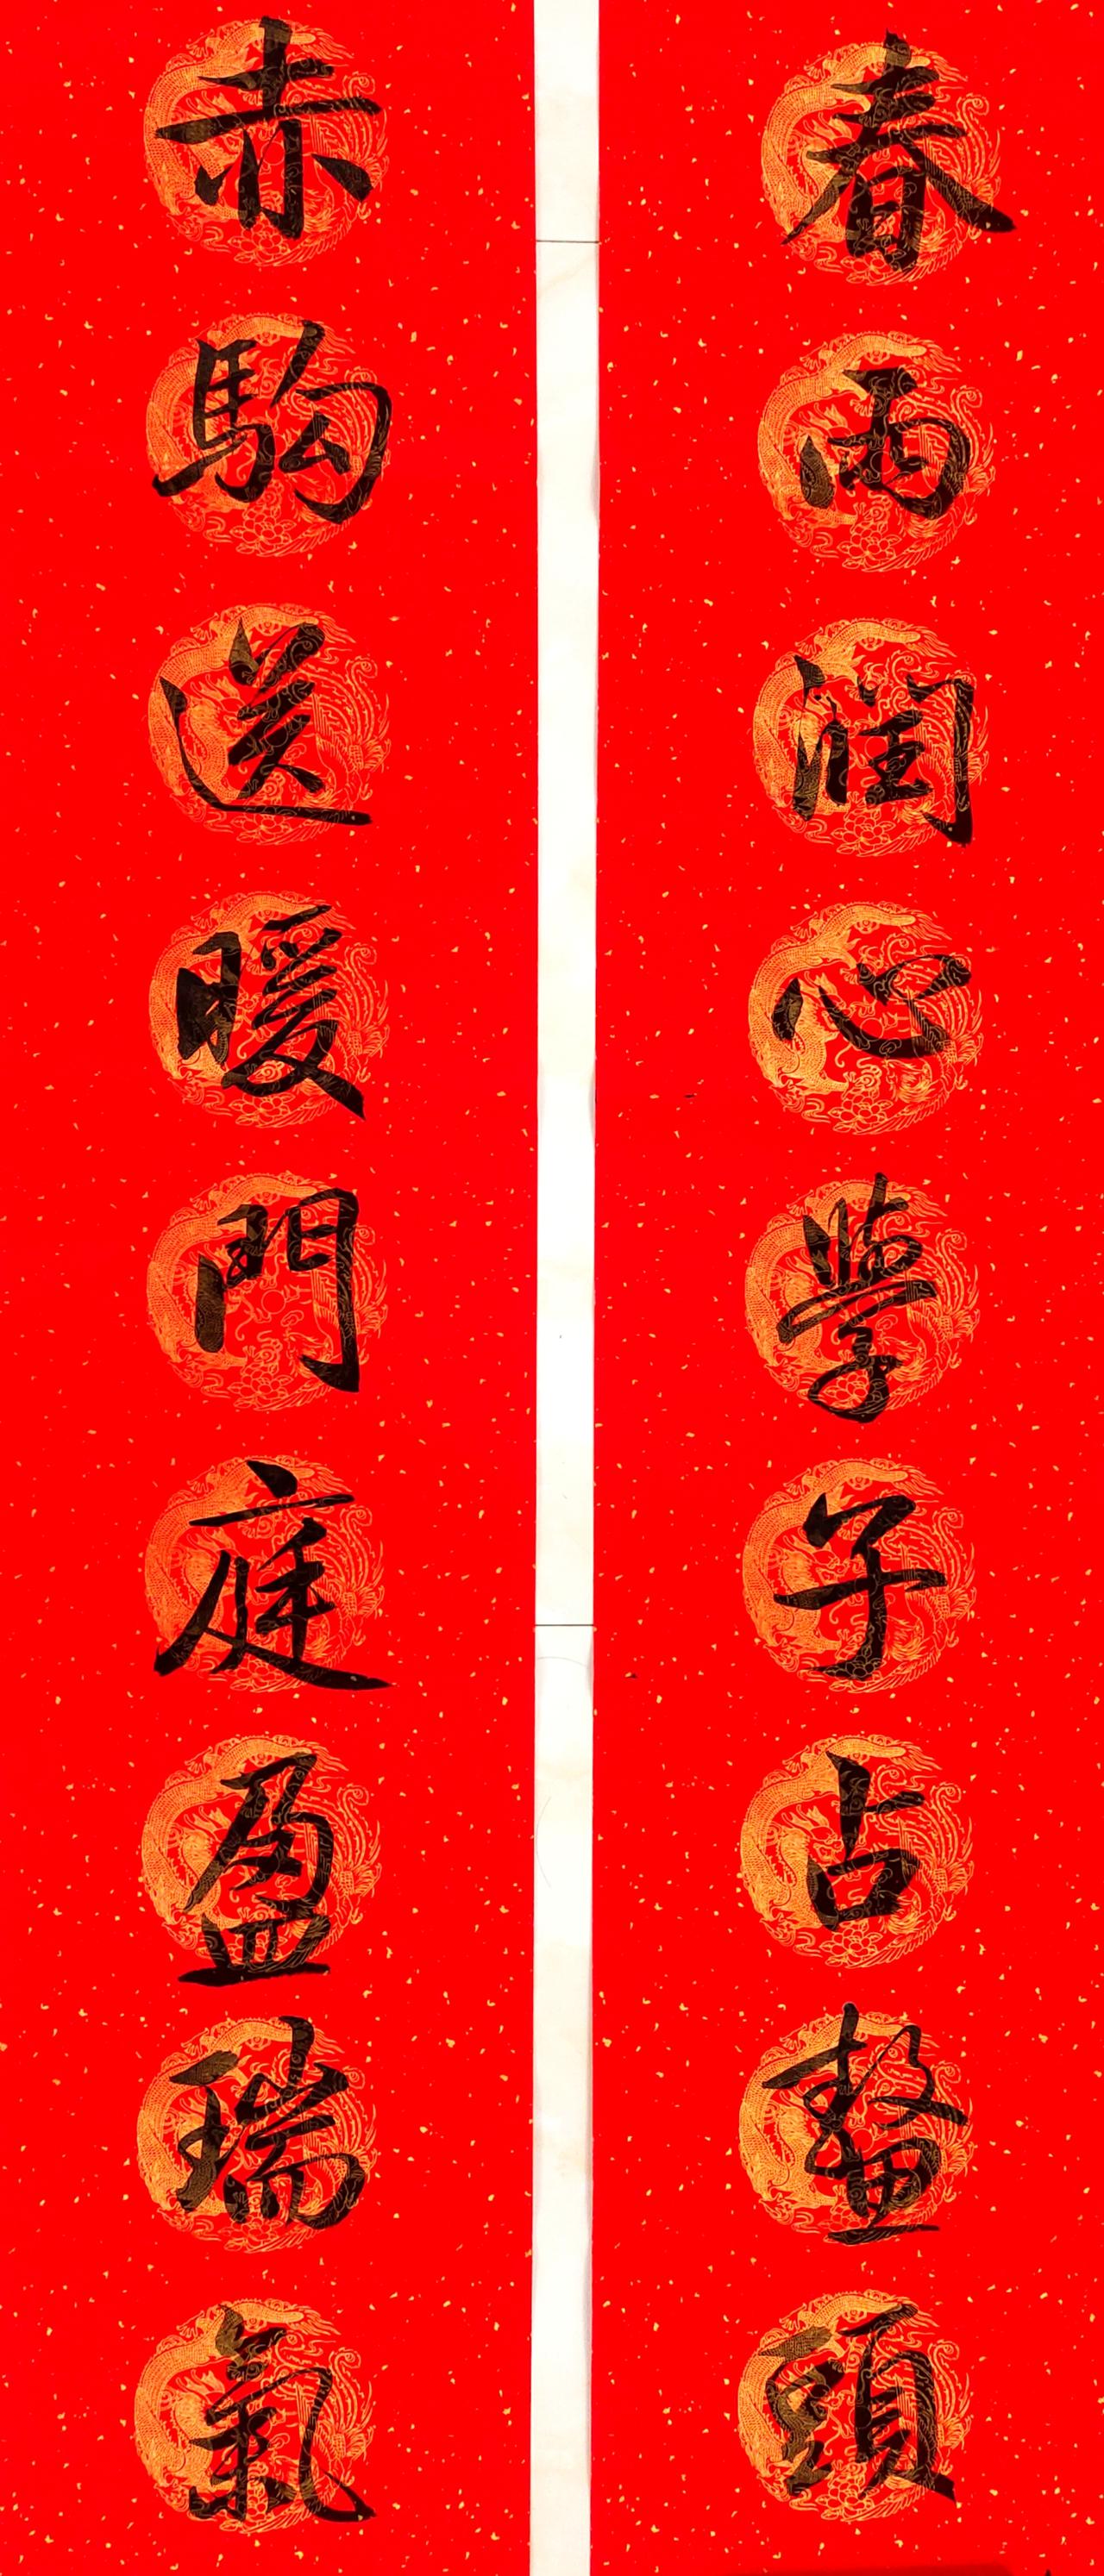 春雨潤心學子占鰲頭
赤駒送暖門庭盈瑞氣